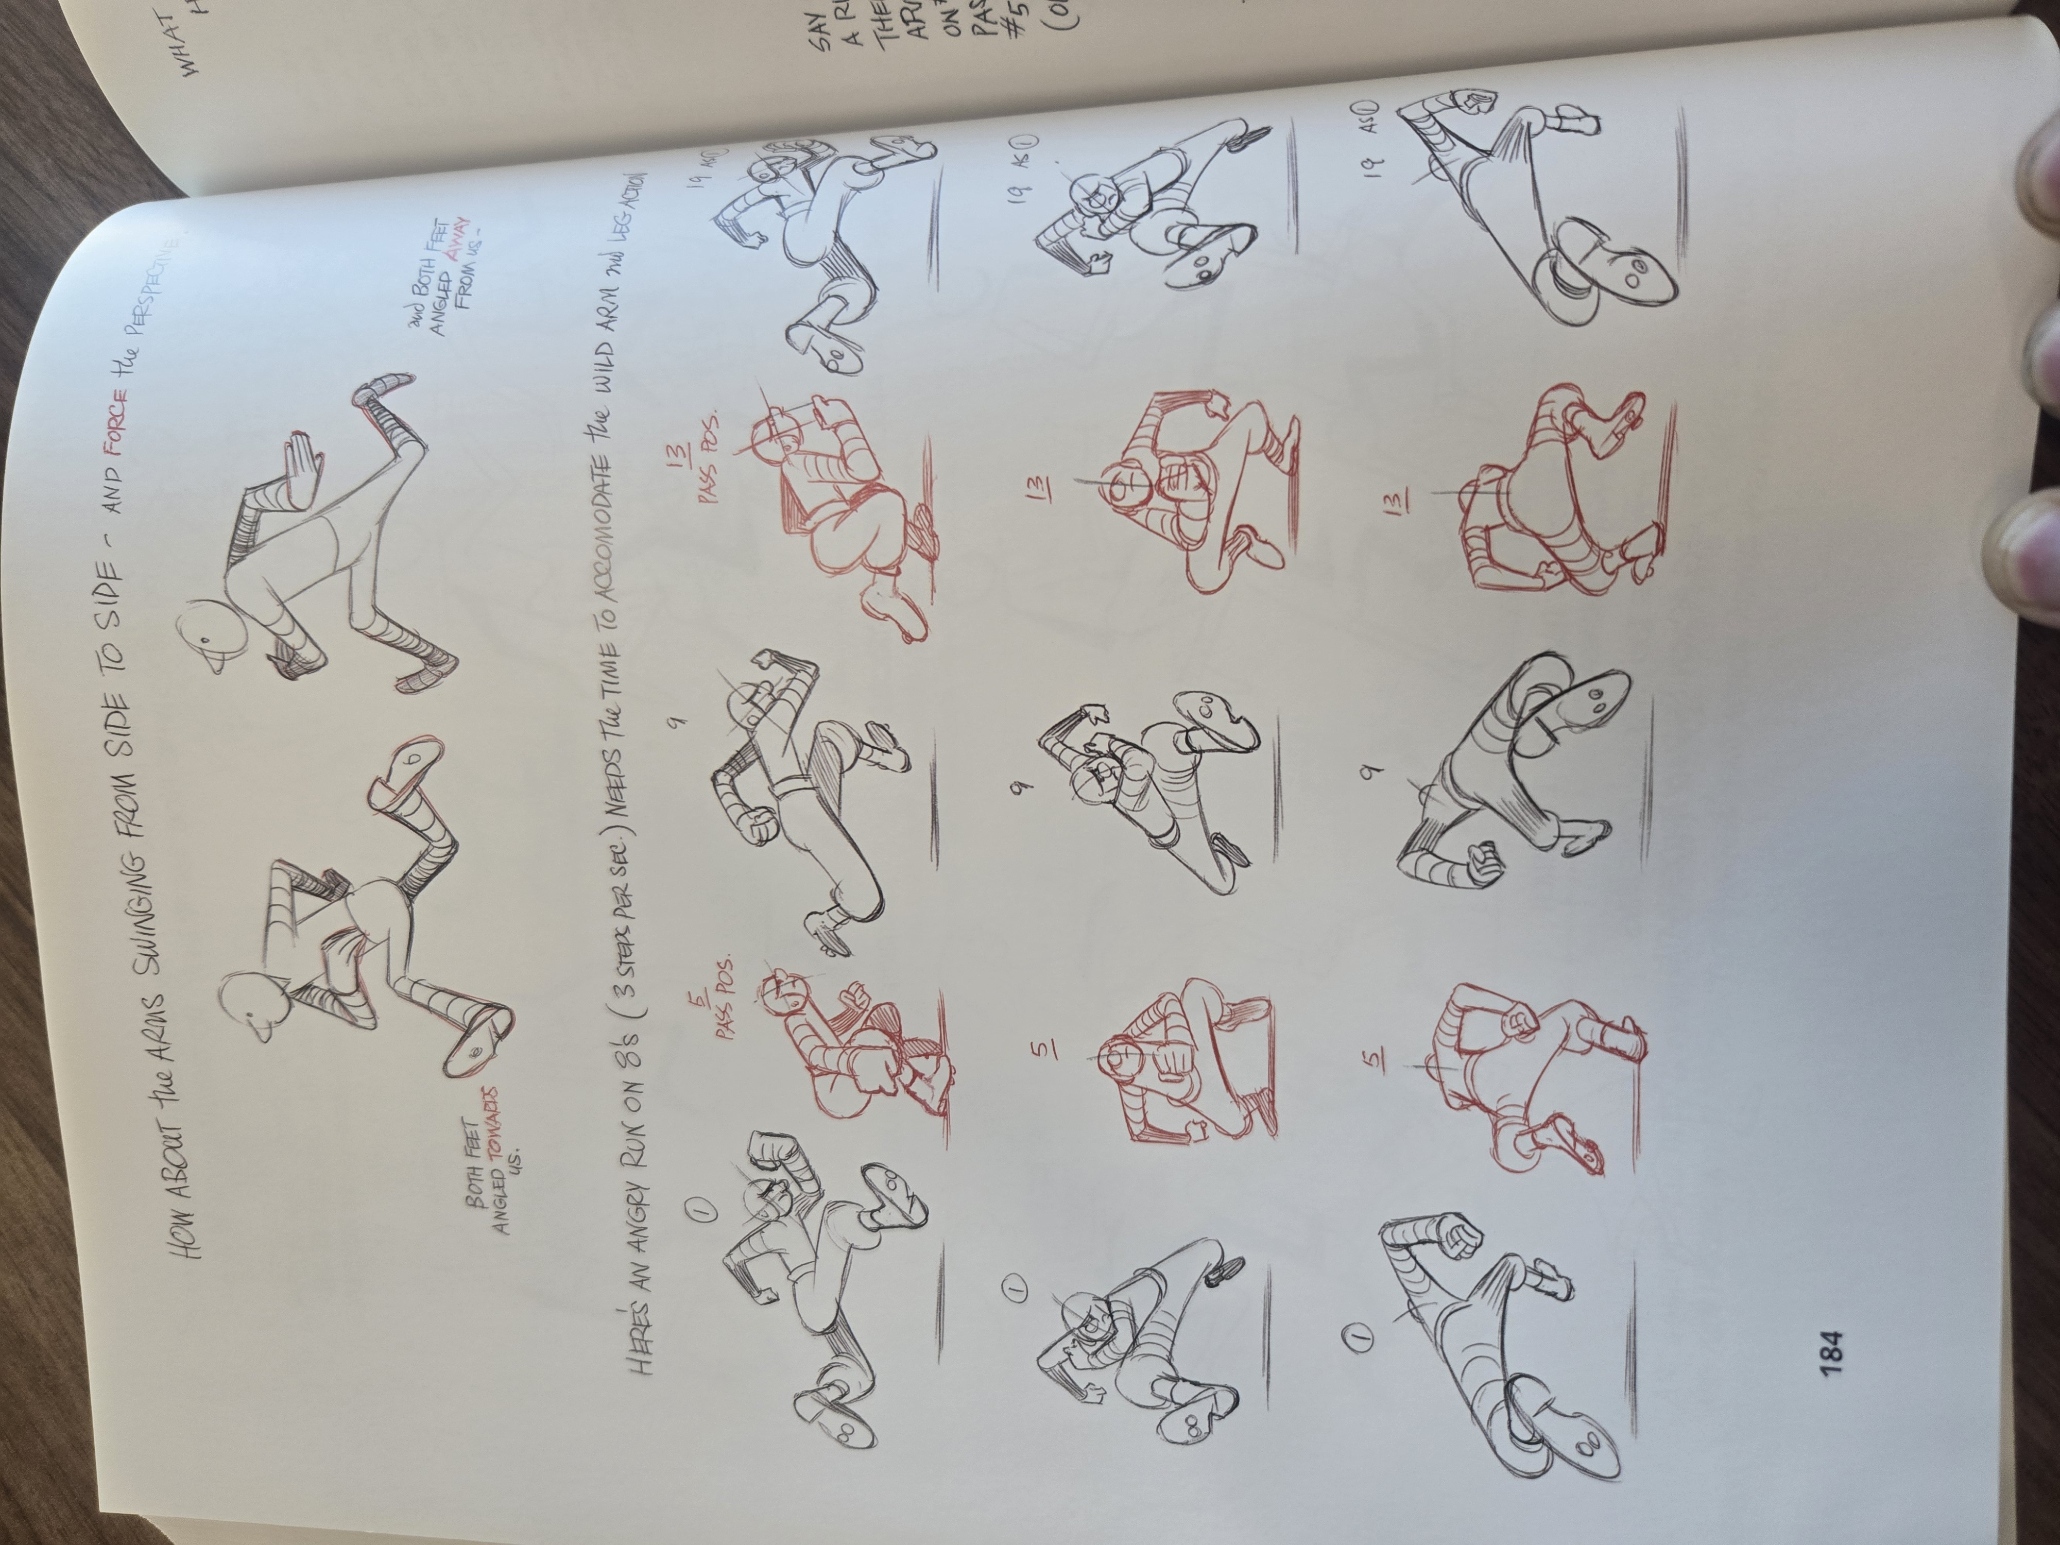 HOW ABOUT the ARMS SWINGING FROM SIDE TO SIDE - AND FORCE the PERSPECTIVE.
BOTH FEET
ANGLED TOWARDS
US.
and BOTH FEET
ANGLED AWAY
FROM US -
HERE'S AN ANGRY RUN ON 8's (3 STEPS PER SEC.) NEEDS the TIME TO ACCOMODATE the WILD ARM and LEG ACTION
1
5
PASS POS.
9
13
PASS POS.
19 AS 1
1
5
9
13
19 AS 1
1
5
9
13
19 AS 1
184
WHAT
SAY
A
ON
#5